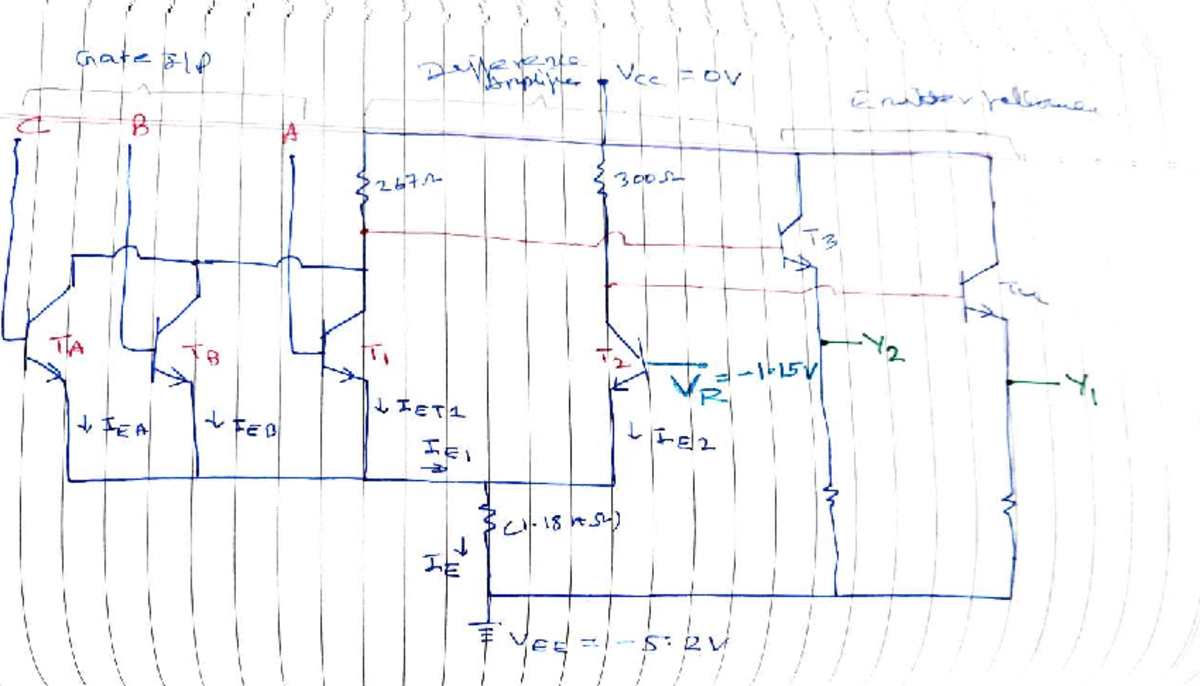 Gate I/P
Difference
Amplifier
VCC = 0V
C
B
A
267Ω
300Ω
T3
TA
TB
T1
T2
VR = -1.15V
Y2
Y1
↓ IEA
↓ IEB
↓ IET1
IE1
→
↓ IE2
(1.18 KΩ)
IE ↓
VEE = -5.2V